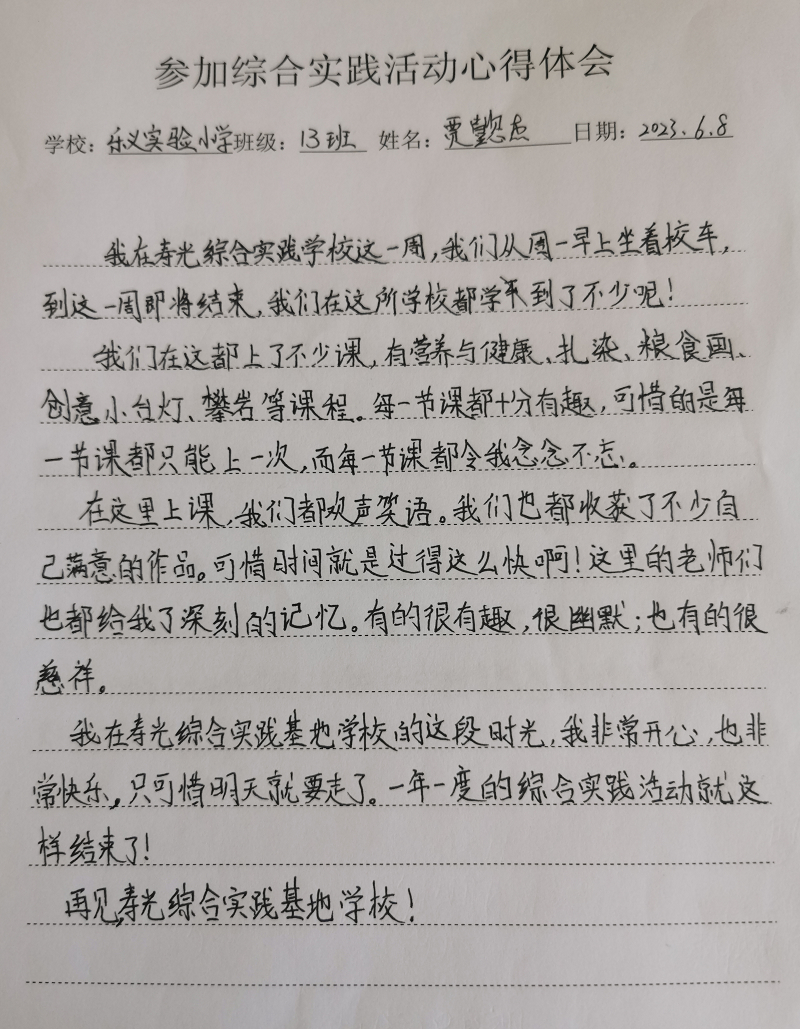 参加综合实践活动心得体会
学校：乐义实验小学班级：13班 姓名：贾 日期：2023.6.8
我在寿光综合实践学校这一周，我们从周一早上坐着校车，
到这一周即将结束，我们在这所学校都学到了不少呢！
我们在这都上了不少课，有营养与健康、扎染、粮食画、
创意小台灯、攀岩等课程。每一节课都十分有趣，可惜的是每
一节课都只能上一次，而每一节课都令我念念不忘。
在这里上课，我们都欢声笑语。我们也都收获了不少自
己满意的作品。可惜时间就是过得这么快啊！这里的老师们
也都给我了深刻的记忆。有的很有趣，很幽默；也有的很
慈祥。
我在寿光综合实践基地学校的这段时光，我非常开心，也非
常快乐，只可惜明天就要走了。一年一度的综合实践活动就这
样结束了！
再见，寿光综合实践基地学校！